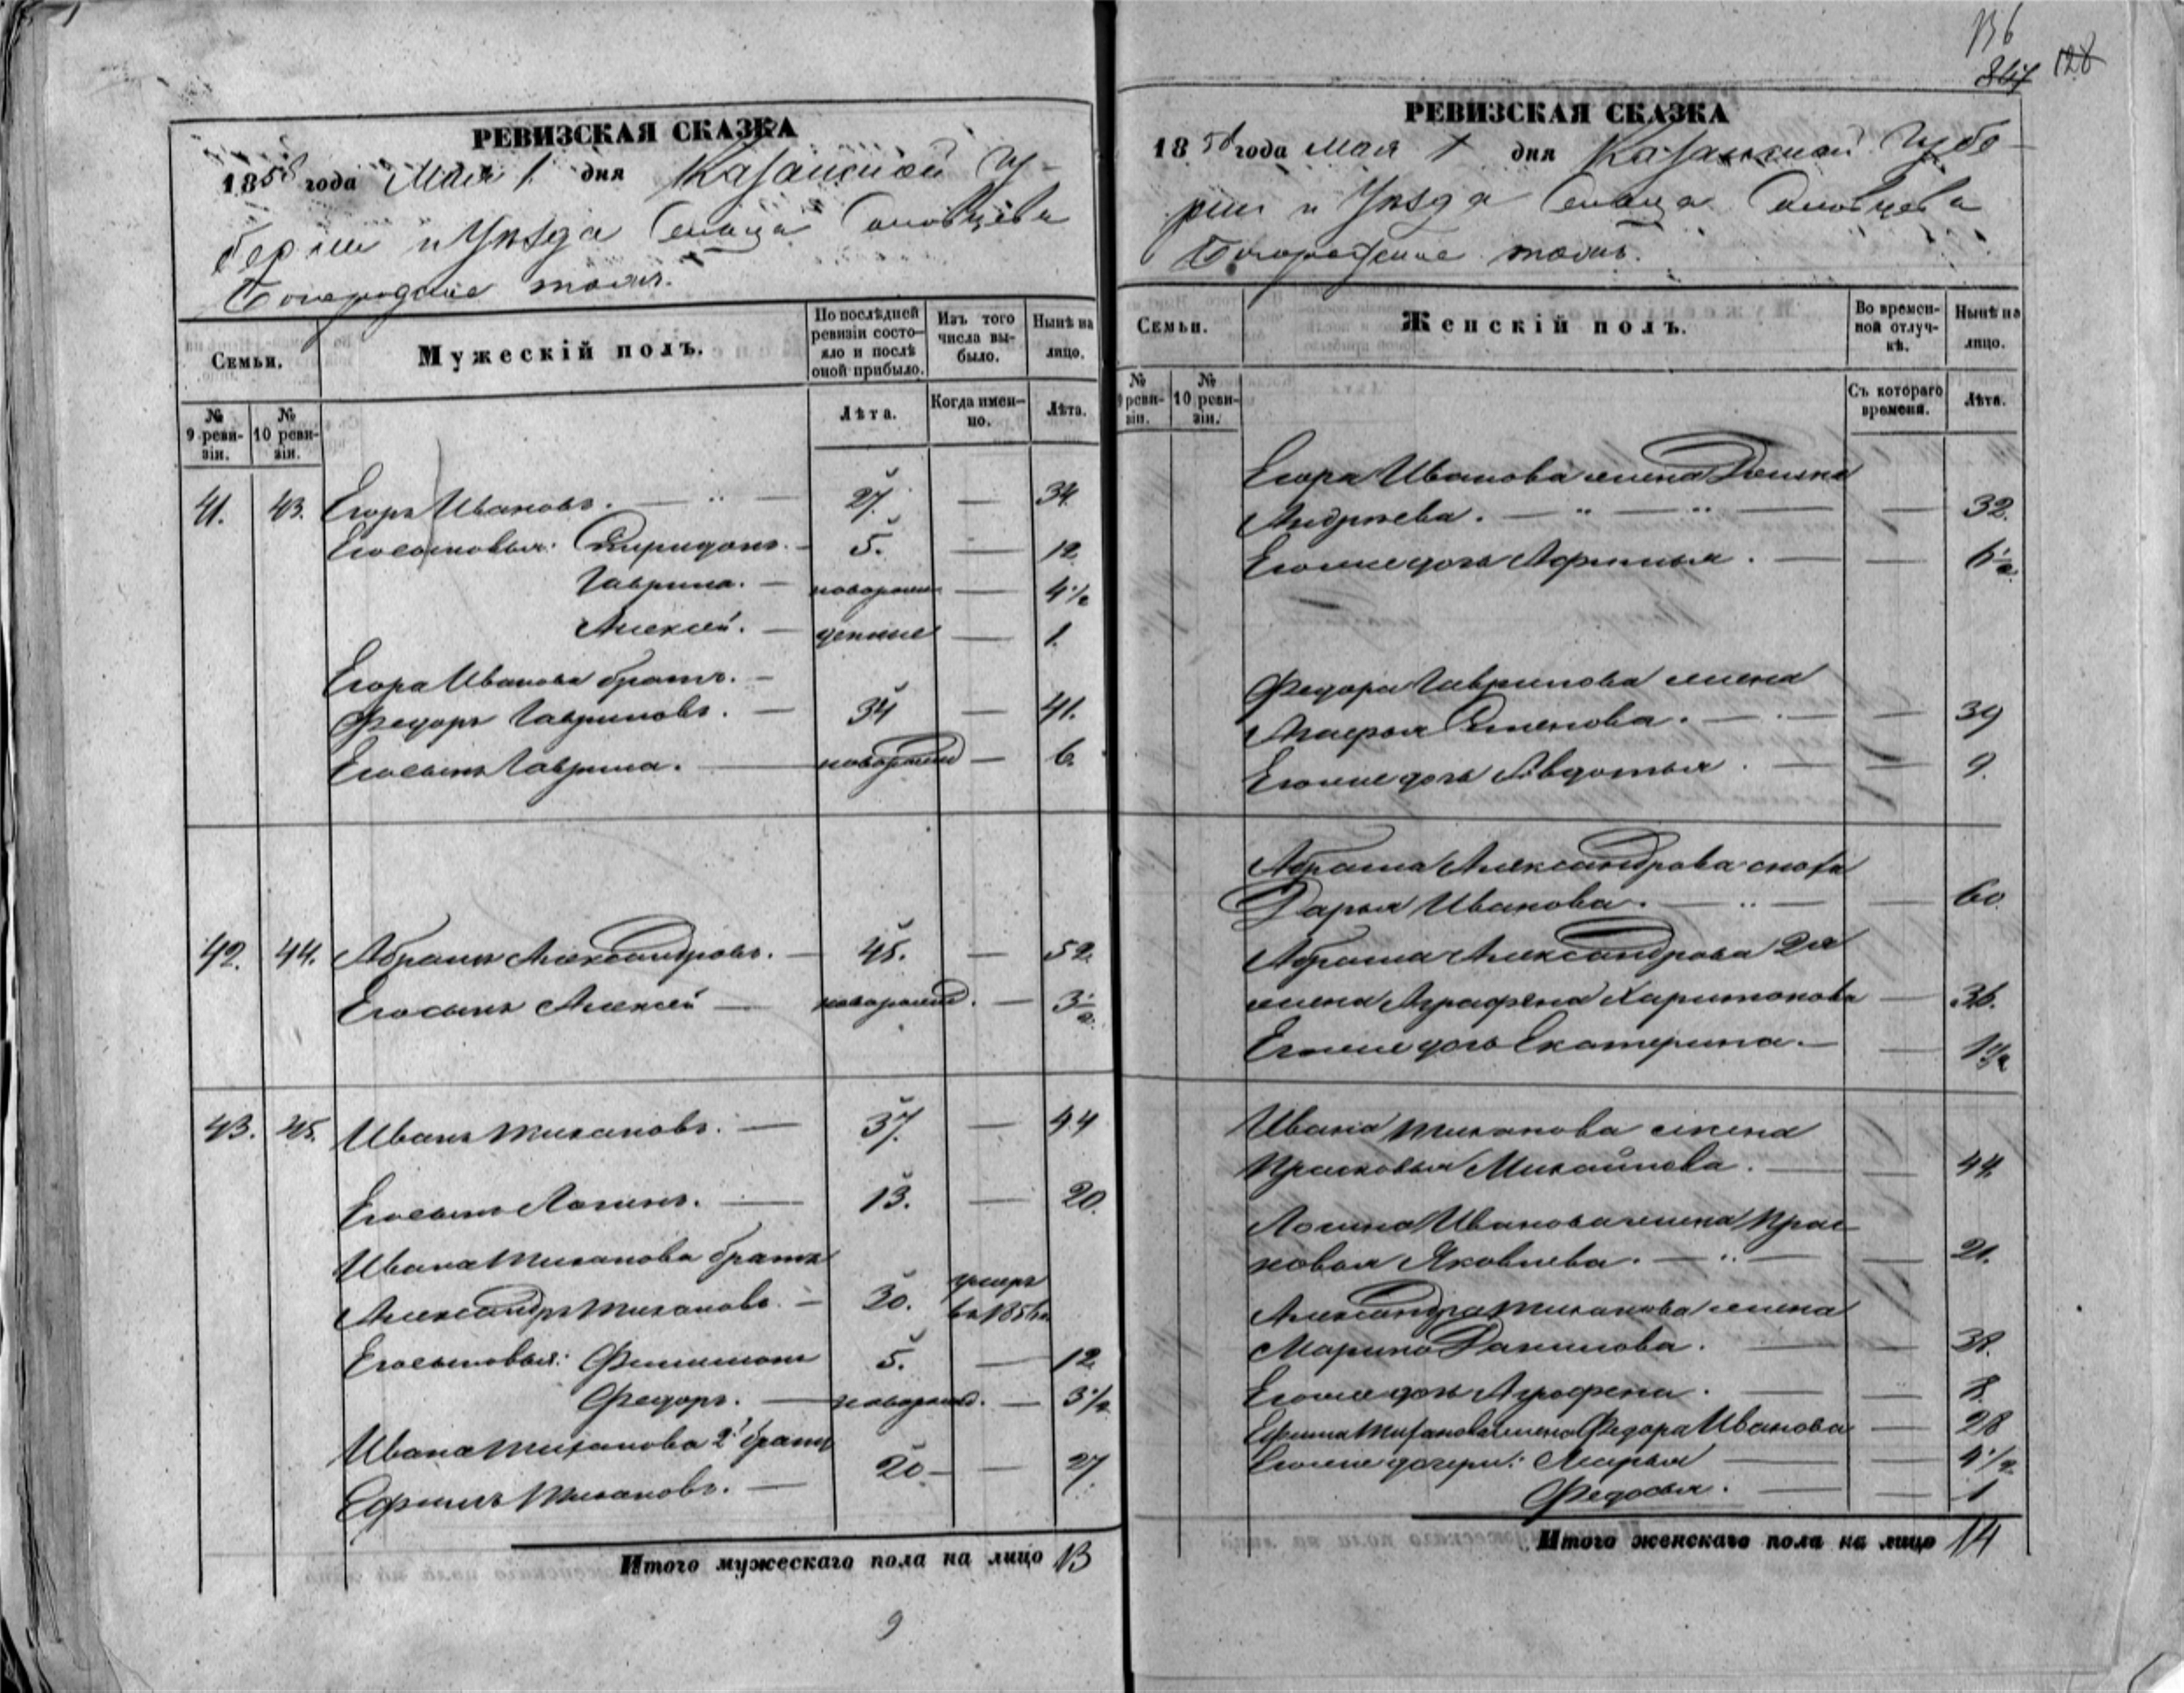 136
128
РЕВИЗСКАЯ СКАЗКА
1858 года Мая 1 дня Казанской Гу-
бернiи и Уѣзда Села
тожъ.
Семьи.
Мужескiй полъ.
По послѣдней ревизiи состо-
яло и послѣ оной прибыло.
Изъ того числа вы-
было.
Нынѣ на лицо.
№ 9 реви-
зiи.
№ 10 реви-
зiи.
Лѣта.
Когда имен-
но.
Лѣта.
41. 43. Егоръ Ивановъ. 27. — 34.
Его сыновья: Спиридонъ. 5. — 12
Гаврила. — новорож — 4 1/2
Алексей. — денные — 1.
Егора Иванова братъ. —
Федоръ Гавриловъ. — 34 — 41.
Его сынъ Гаврила. — новорожд — 6.
42. 44. Абрамъ Александровъ. — 45. — 52.
Его сынъ Алексей — новорожд. — 3 1/2
43. 45. Иванъ Тихановъ. — 37. — 44
Его сынъ Логинъ. — 13. — 20.
Ивана Тиханова братъ
Александръ Тихановъ. — 30. умеръ въ 1856 г.
Его сыновья: Филимонъ 5. — 12
Федоръ. — новорожд. — 3 1/2
Ивана Тиханова 2й братъ
Ефимъ Тихановъ. — 20 — 27.
Итого мужескаго пола на лицо 13
9
РЕВИЗСКАЯ СКАЗКА
1858 года мая 1 дня Казанской Губе-
рнiи и Уѣзда Села
тожъ.
Семьи.
Женскiй полъ.
Во времен-
ной отлуч-
кѣ.
Нынѣ на лицо.
№ 9 реви-
зiи.
№ 10 реви-
зiи.
Съ котораго времени.
Лѣта.
Егора Иванова жена
Андреева. — — 32.
Его же дочь Афимья. — — 6 1/2
Федора Гаврилова жена
Марья Семенова. — — 39
Его же дочь Авдотья. — — 9.
Абрама Александрова сноха
Дарья Иванова. — — 60
Абрама Александрова 2я
жена Аграфена Харитонова — 36.
Его же дочь Екатерина. — — 1 1/2
Ивана Тиханова жена
Прасковья Михайлова. — — 44.
Логина Иванова жена Прас-
ковья Яковлева. — — 21.
Александра Тиханова жена
Марина Данилова. — — 38.
Его же дочь Аграфена. — — 8.
Ефима Тиханова жена Федора Иванова — 28
Его же дочери: Марья — — 4 1/2
Федосья. — — 1
Итого женскаго пола на лицо 14